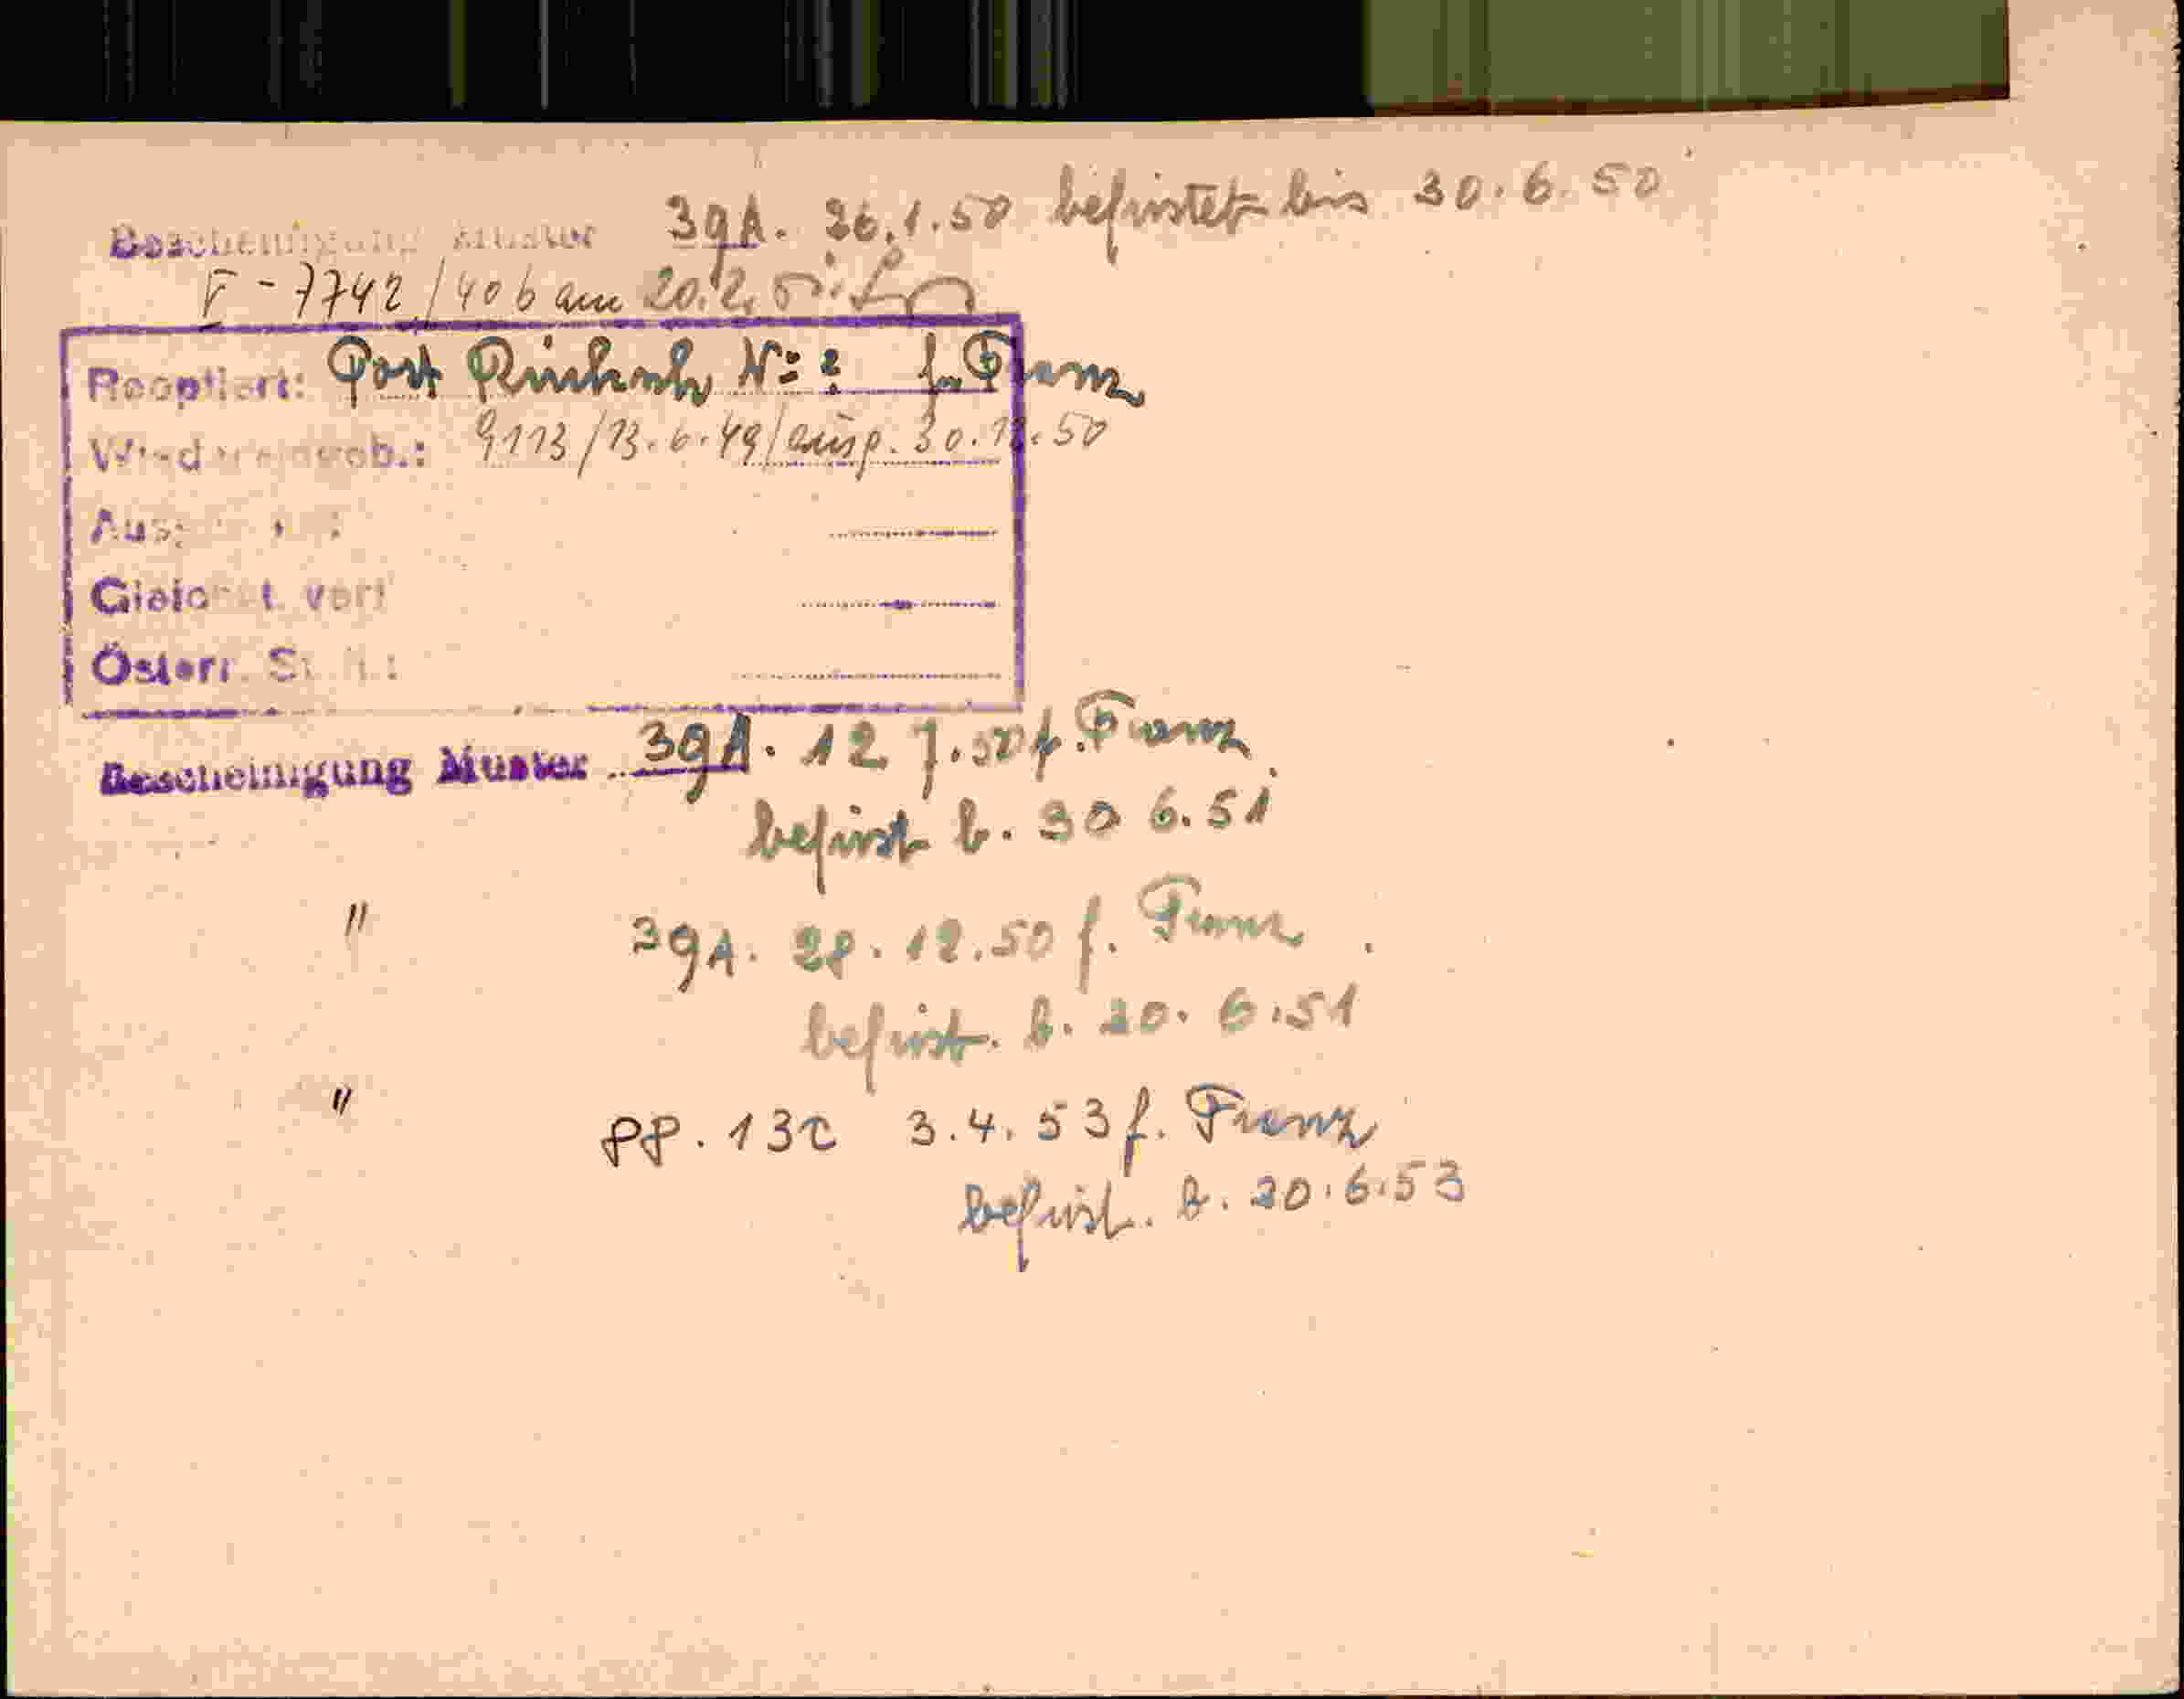 Bescheinigung Muster 39A. 26.1.50 befristet bis 30.6.50
F-7742/406 am 20.2.
Reoptiert: Post N: f. Franz
Wiedereingeb.: 9113/13.6.49/ausg. 30.12.50
Gleichst. verl
Österr. St.
Bescheinigung Muster 39A. 12 7.50 f. Franz
befrist b. 30 6.51
" 39A. 28.12.50 f. Franz
befrist. b. 30.6.51
" pp. 13c 3.4.53 f. Franz
befrist. b. 30.6.53